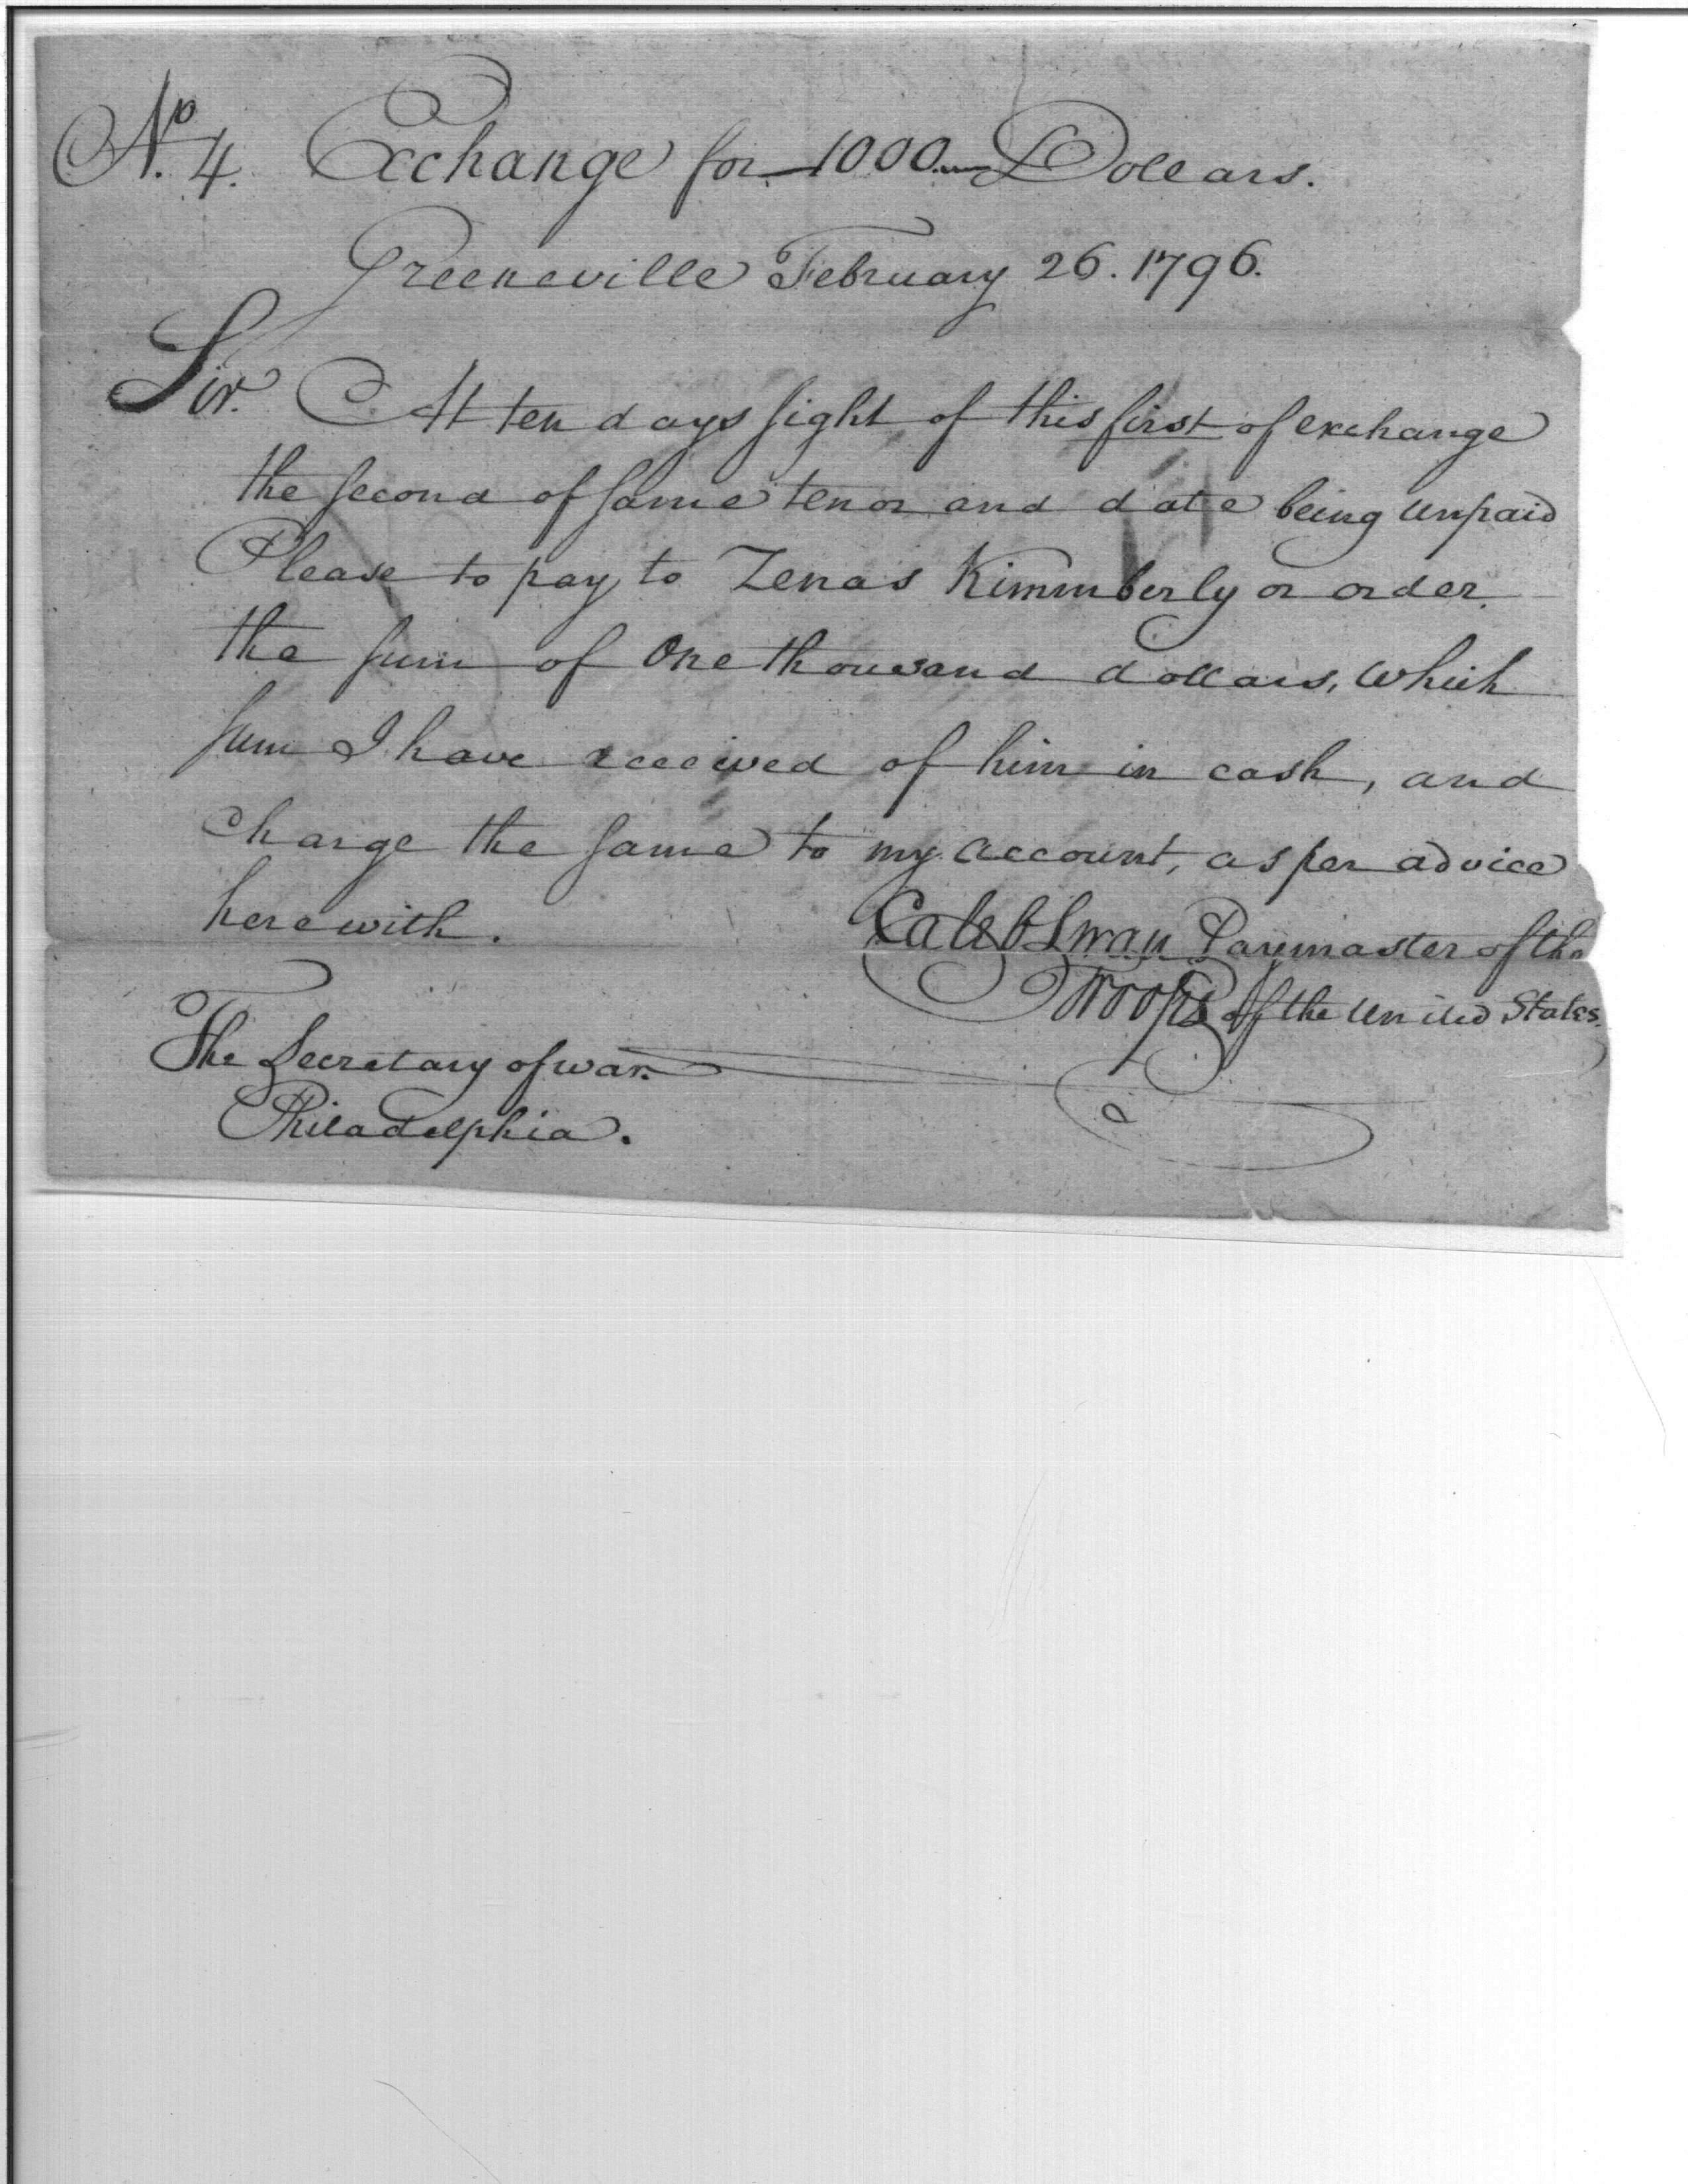 No. 4. Exchange for 1000 Dollars.
Greeneville February 26. 1796.
Sir. At ten days sight of this first of exchange
the second of same tenor and date being unpaid
Please to pay to Zenas Kimmberly or order
the sum of One thousand dollars, which
sum I have received of him in cash, and
charge the same to my account, as per advice
herewith.
Caleb Swan Paymaster of the
Troops of the United States.
The Secretary of war.
Philadelphia.